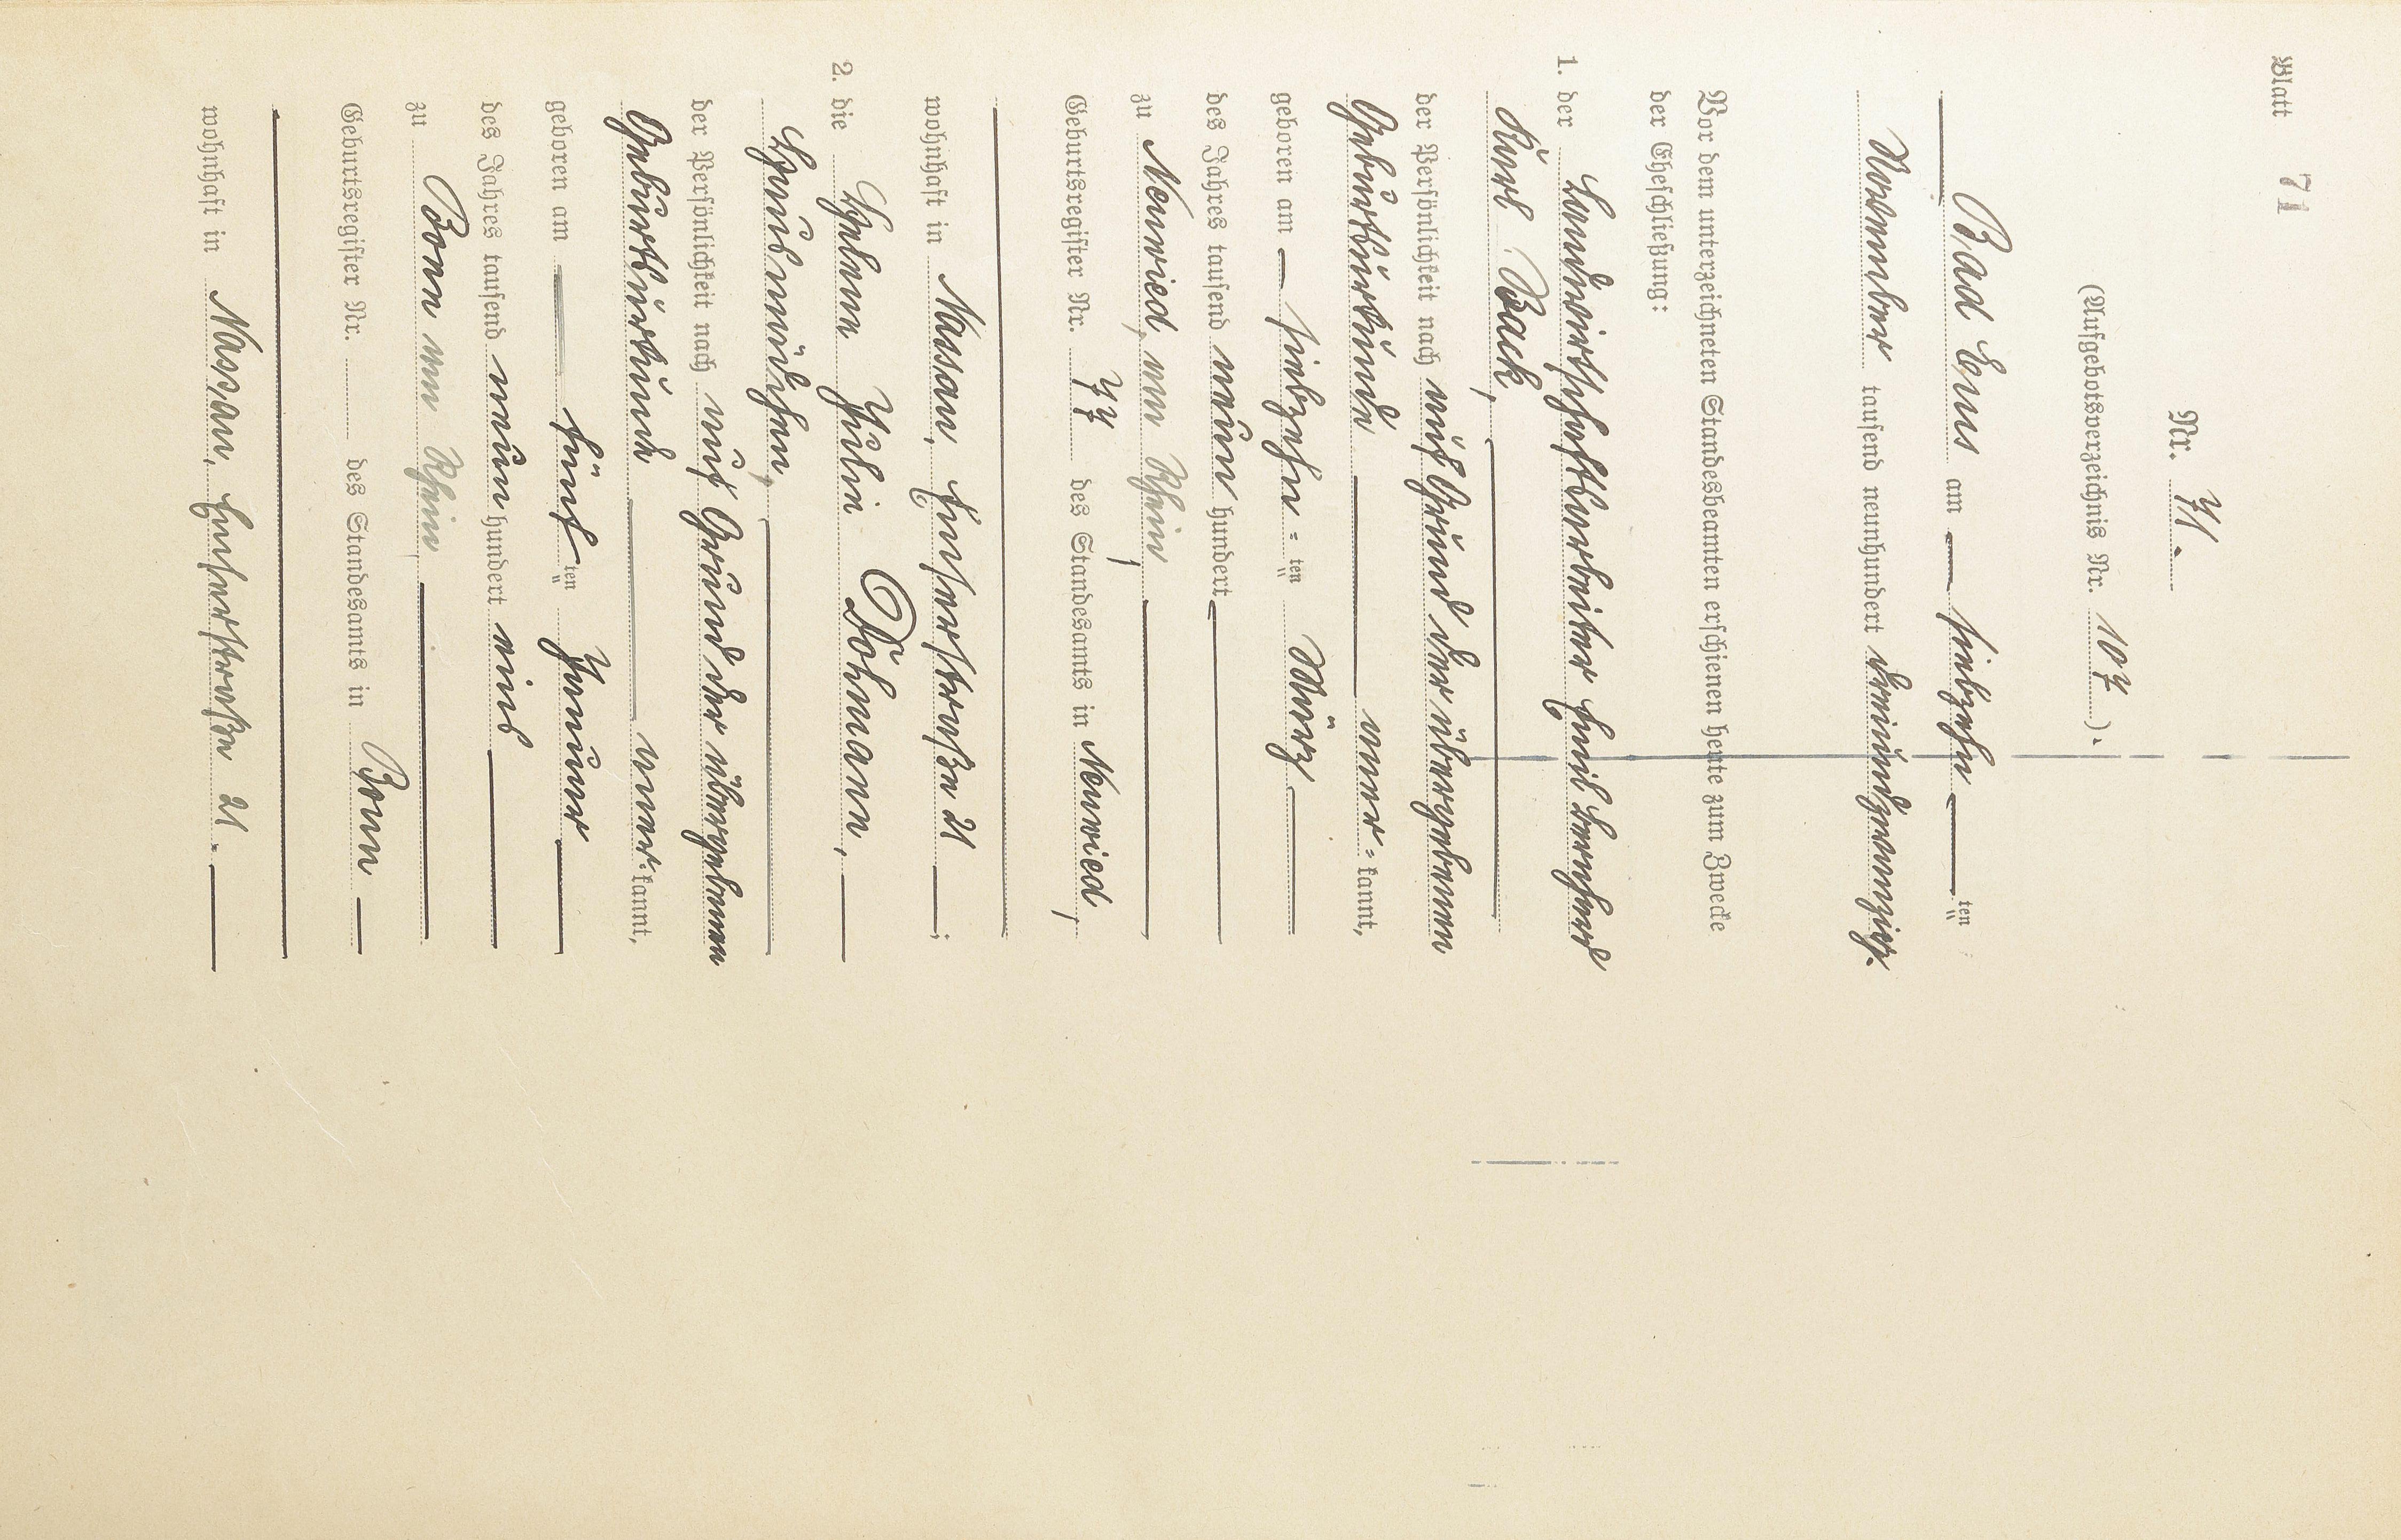 Blatt 71
Nr. 71.
(Aufgebotsverzeichnis Nr. 107).
Bad Ems am siebzehn ten
November tausend neunhundert dreiundzwanzig.
Vor dem unterzeichneten Standesbeamten erschienen heute zum Zwecke
der Eheschließung:
1. der Landwirtschaftsarbeiter Emil Bernhard
Karl Back,
der Persönlichkeit nach auf Grund der übergebenen
Geburtsurkunde aner=kannt,
geboren am siebzehn=ten März
des Jahres tausend neunhundert
zu Neuwied, am Rhein,
Geburtsregister Nr. 77 des Standesamts in Neuwied,
wohnhaft in Nassau, Emserstraße 21;
2. die Helene Julie Döhmann,
Hausmädchen,
der Persönlichkeit nach auf Grund der übergebenen
Geburtsurkunde aner=kannt,
geboren am fünften Januar
des Jahres tausend neunhundert eins
zu Bonn am Rhein
Geburtsregister Nr. des Standesamts in Bonn
wohnhaft in Nassau, Emserstraße 21.